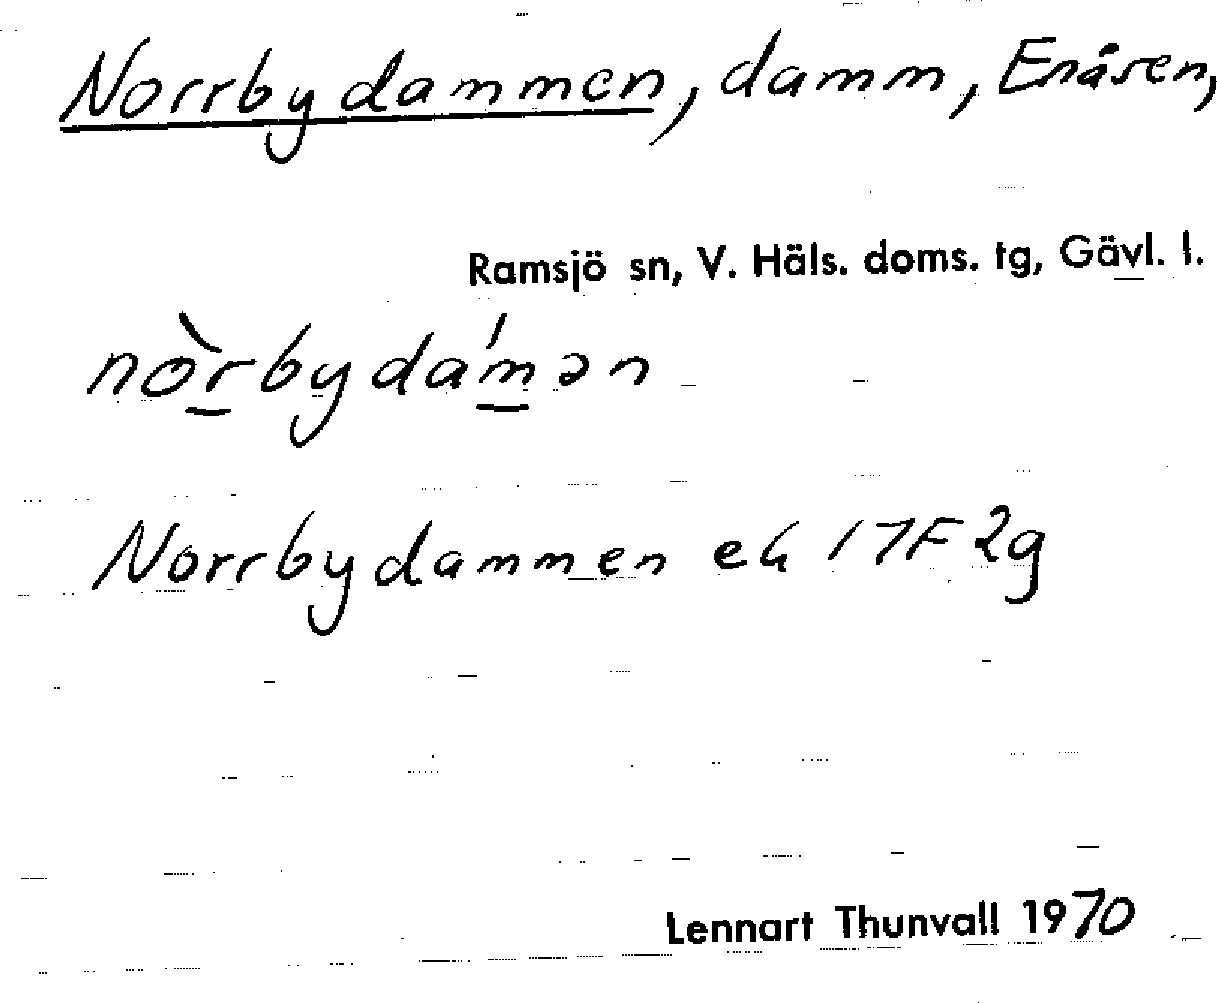 Norrbydammen, damm, Enåsen,
Ramsjö sn, V. Häls. doms. tg, Gävl. l.
nòrbydámən
Norrbydammen ek 17F 2g
Lennart Thunvall 1970